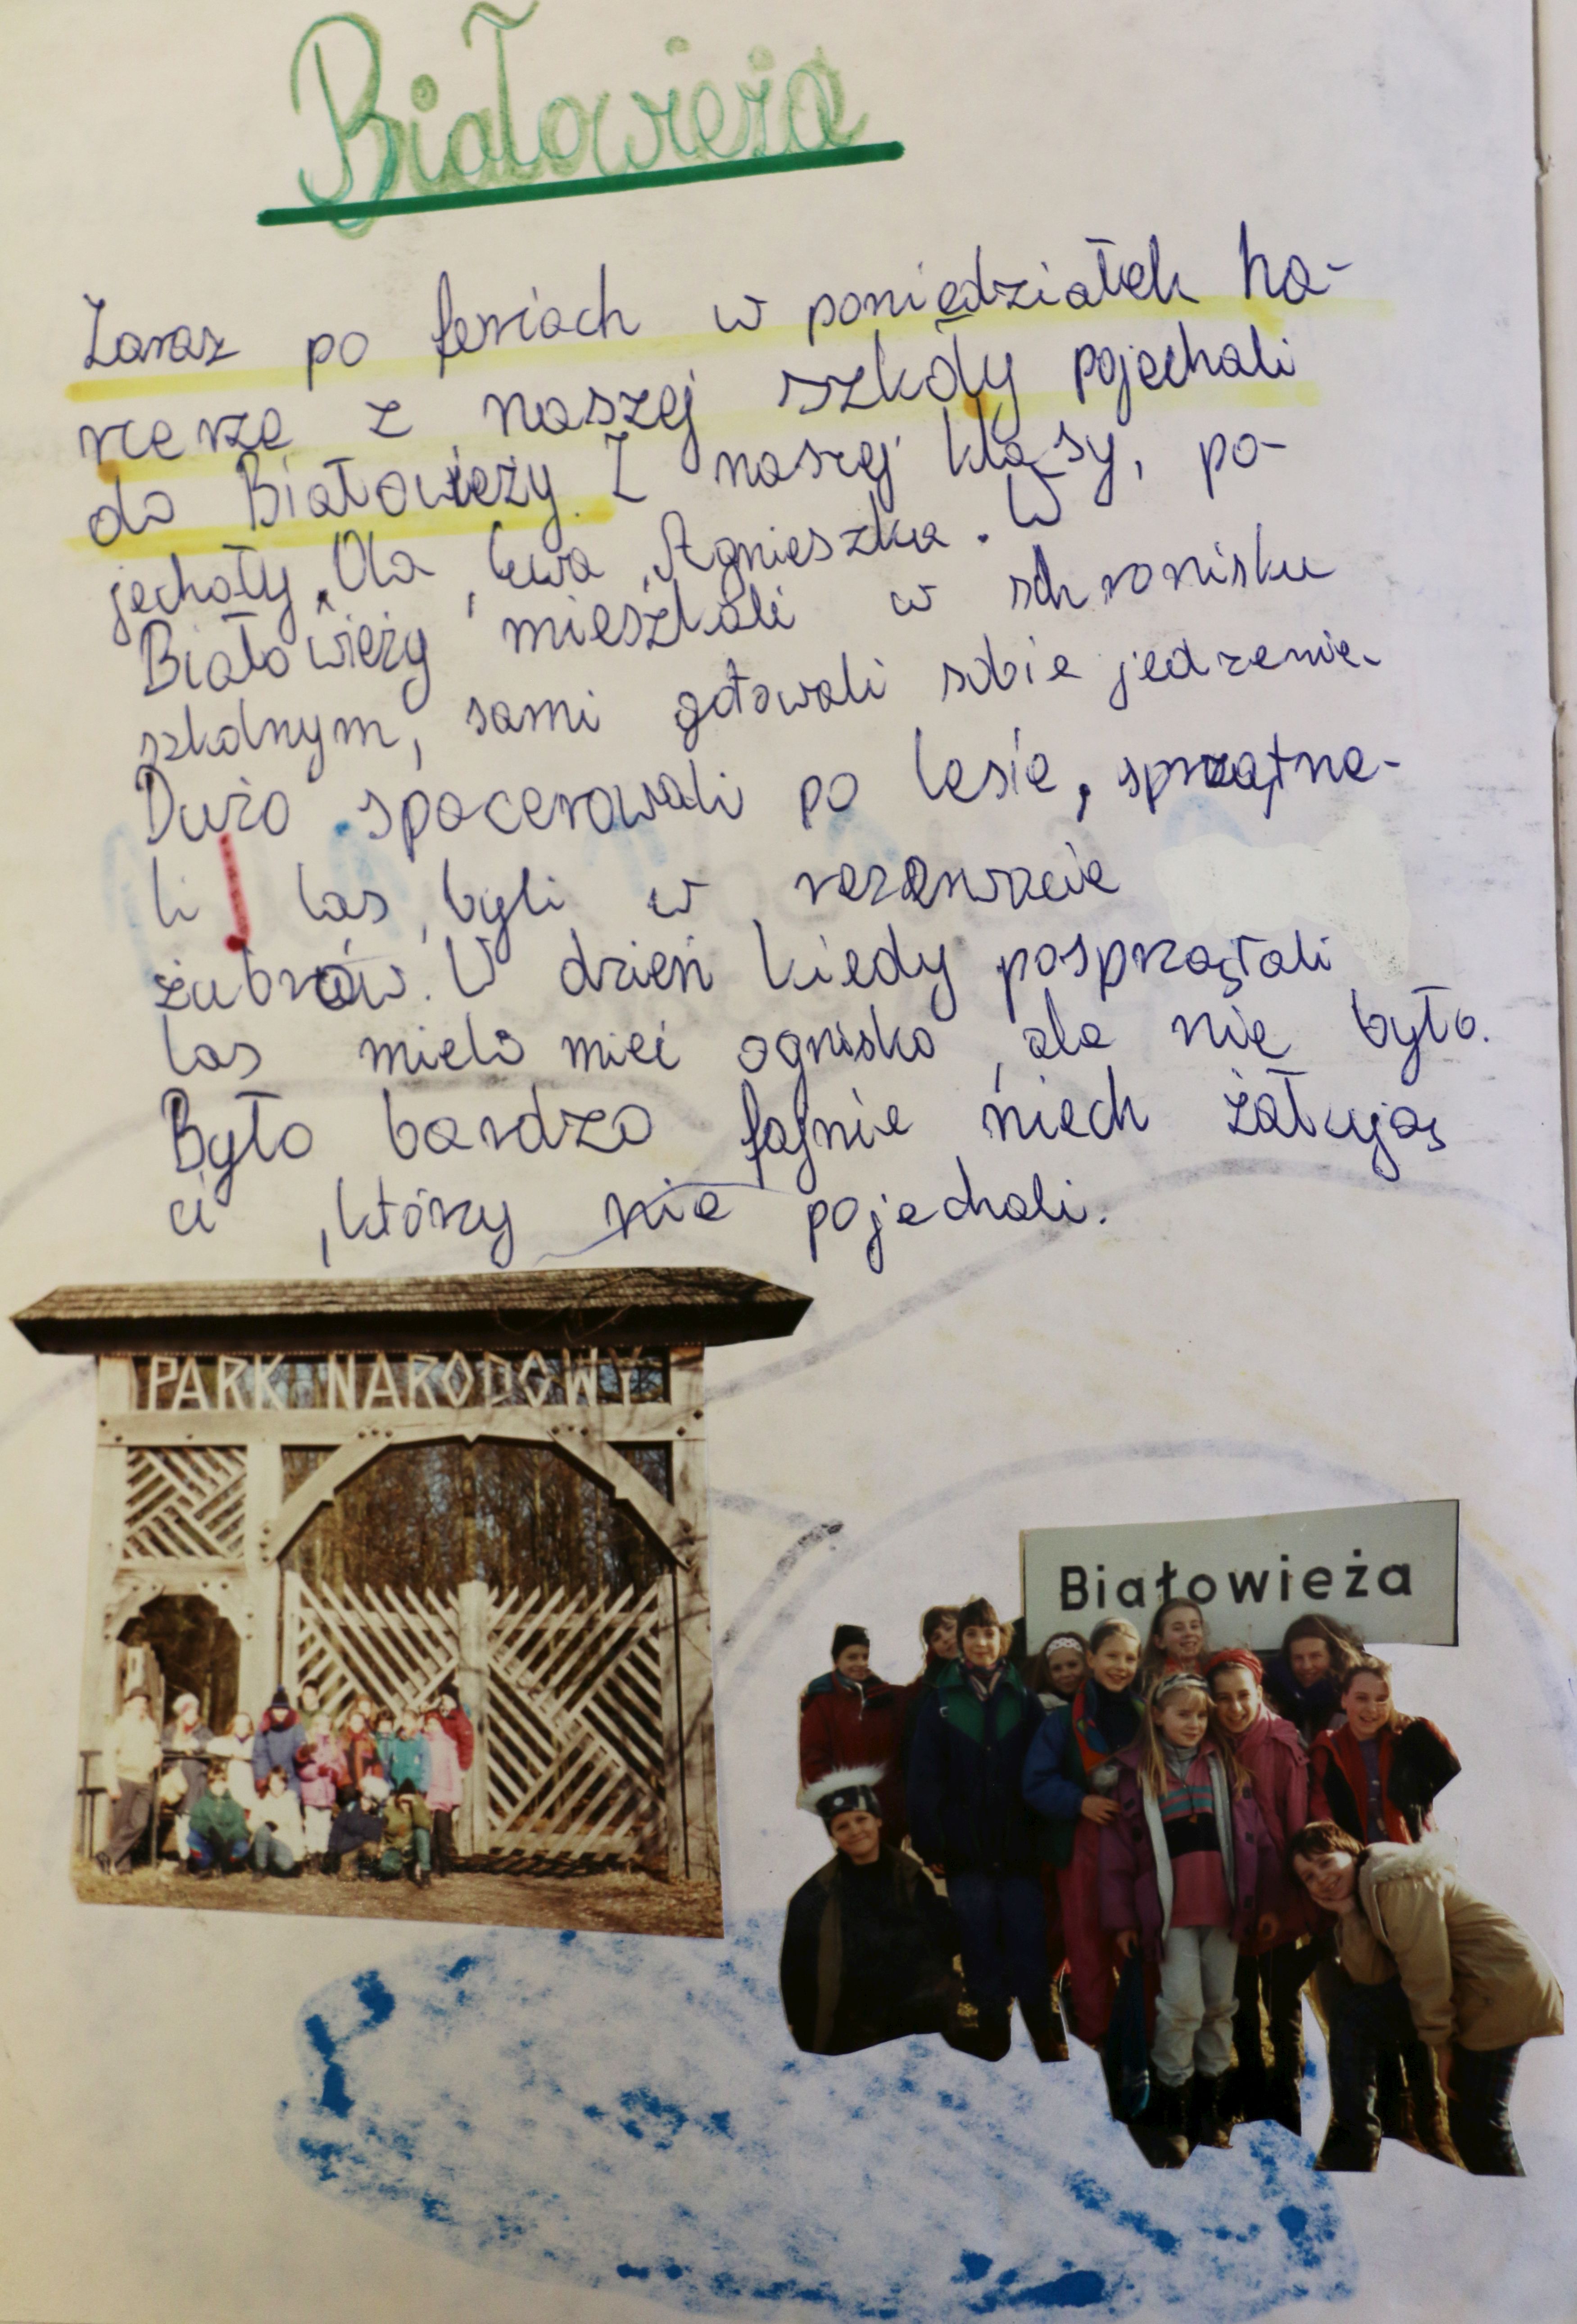 Białowieża
Zaraz po feriach w poniedziałek ha-
rcerze z naszej szkoły pojechali
do Białowieży. Z naszej klasy, po-
jechały Ola, Ewa, Agnieszka. W
Białowieży mieszkali w schronisku
szkolnym, sami gotowali sobie jedzenie.
Dużo spacerowali po lesie, sprzątne-
li las, byli w rezerwacie
żubrów. W dzień kiedy posprzątali
las mieli mieć ognisko, ale nie było.
Było bardzo fajnie, niech żałują
ci, którzy nie pojechali.
PARK NARODOWY
Białowieża